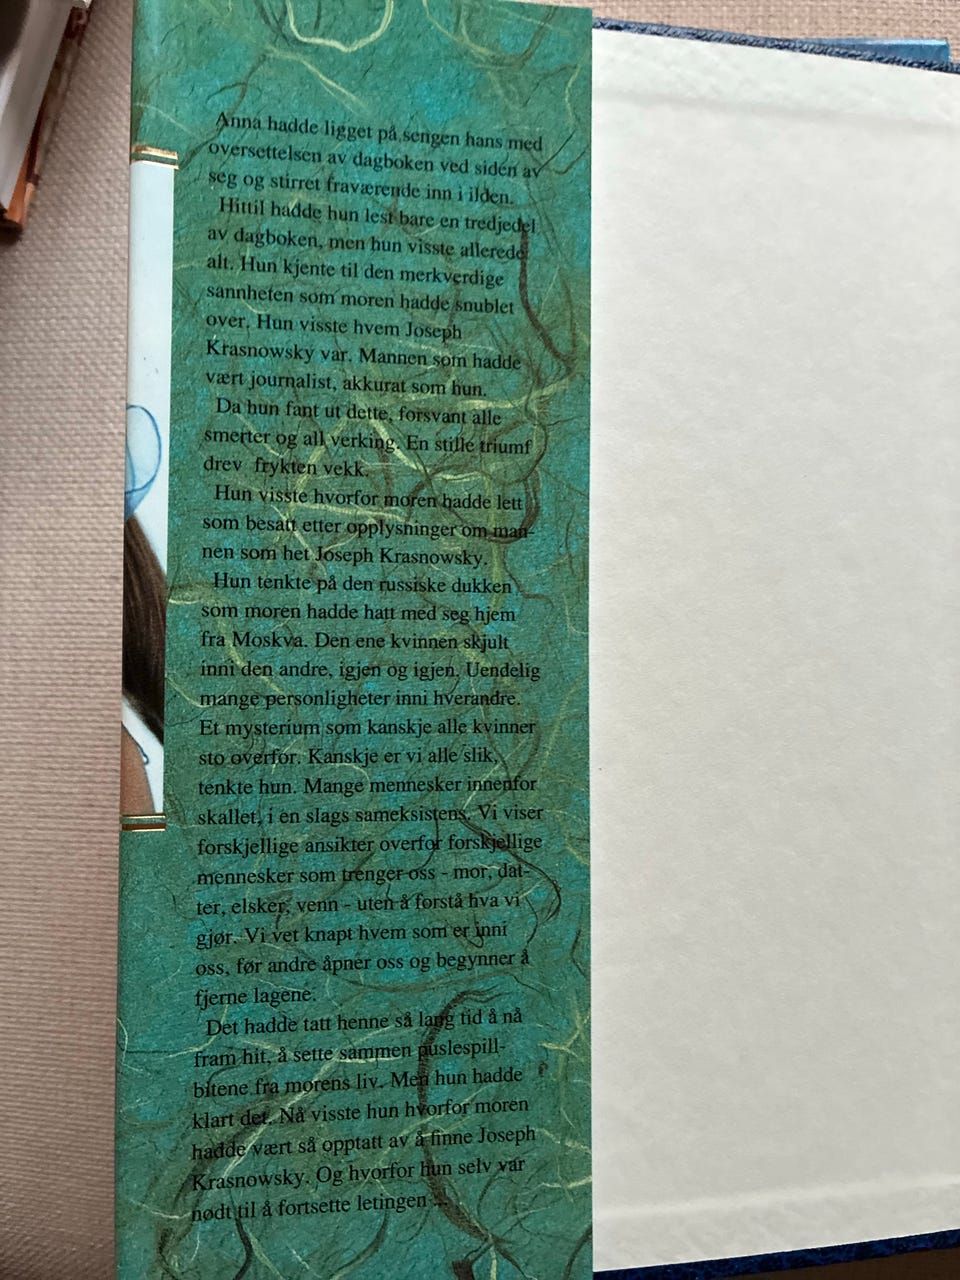 Anna hadde ligget på sengen hans med
oversettelsen av dagboken ved siden av
seg og stirret fraværende inn i ilden.
Hittil hadde hun lest bare en tredjedel
av dagboken, men hun visste allerede
alt. Hun kjente til den merkverdige
sannheten som moren hadde snublet
over. Hun visste hvem Joseph
Krasnowsky var. Mannen som hadde
vært journalist, akkurat som hun.
Da hun fant ut dette, forsvant alle
smerter og all verking. En stille triumf
drev frykten vekk.
Hun visste hvorfor moren hadde lett
som besatt etter opplysninger om man-
nen som het Joseph Krasnowsky.
Hun tenkte på den russiske dukken
som moren hadde hatt med seg hjem
fra Moskva. Den ene kvinnen skjult
inni den andre, igjen og igjen. Uendelig
mange personligheter inni hverandre.
Et mysterium som kanskje alle kvinner
sto overfor. Kanskje er vi alle slik,
tenkte hun. Mange mennesker innenfor
skallet, i en slags sameksistens. Vi viser
forskjellige ansikter overfor forskjellige
mennesker som trenger oss - mor, dat-
ter, elsker, venn - uten å forstå hva vi
gjør. Vi vet knapt hvem som er inni
oss, før andre åpner oss og begynner å
fjerne lagene.
Det hadde tatt henne så lang tid å nå
fram hit, å sette sammen puslespill-
bitene fra morens liv. Men hun hadde
klart det. Nå visste hun hvorfor moren
hadde vært så opptatt av å finne Joseph
Krasnowsky. Og hvorfor hun selv var
nødt til å fortsette letingen ...